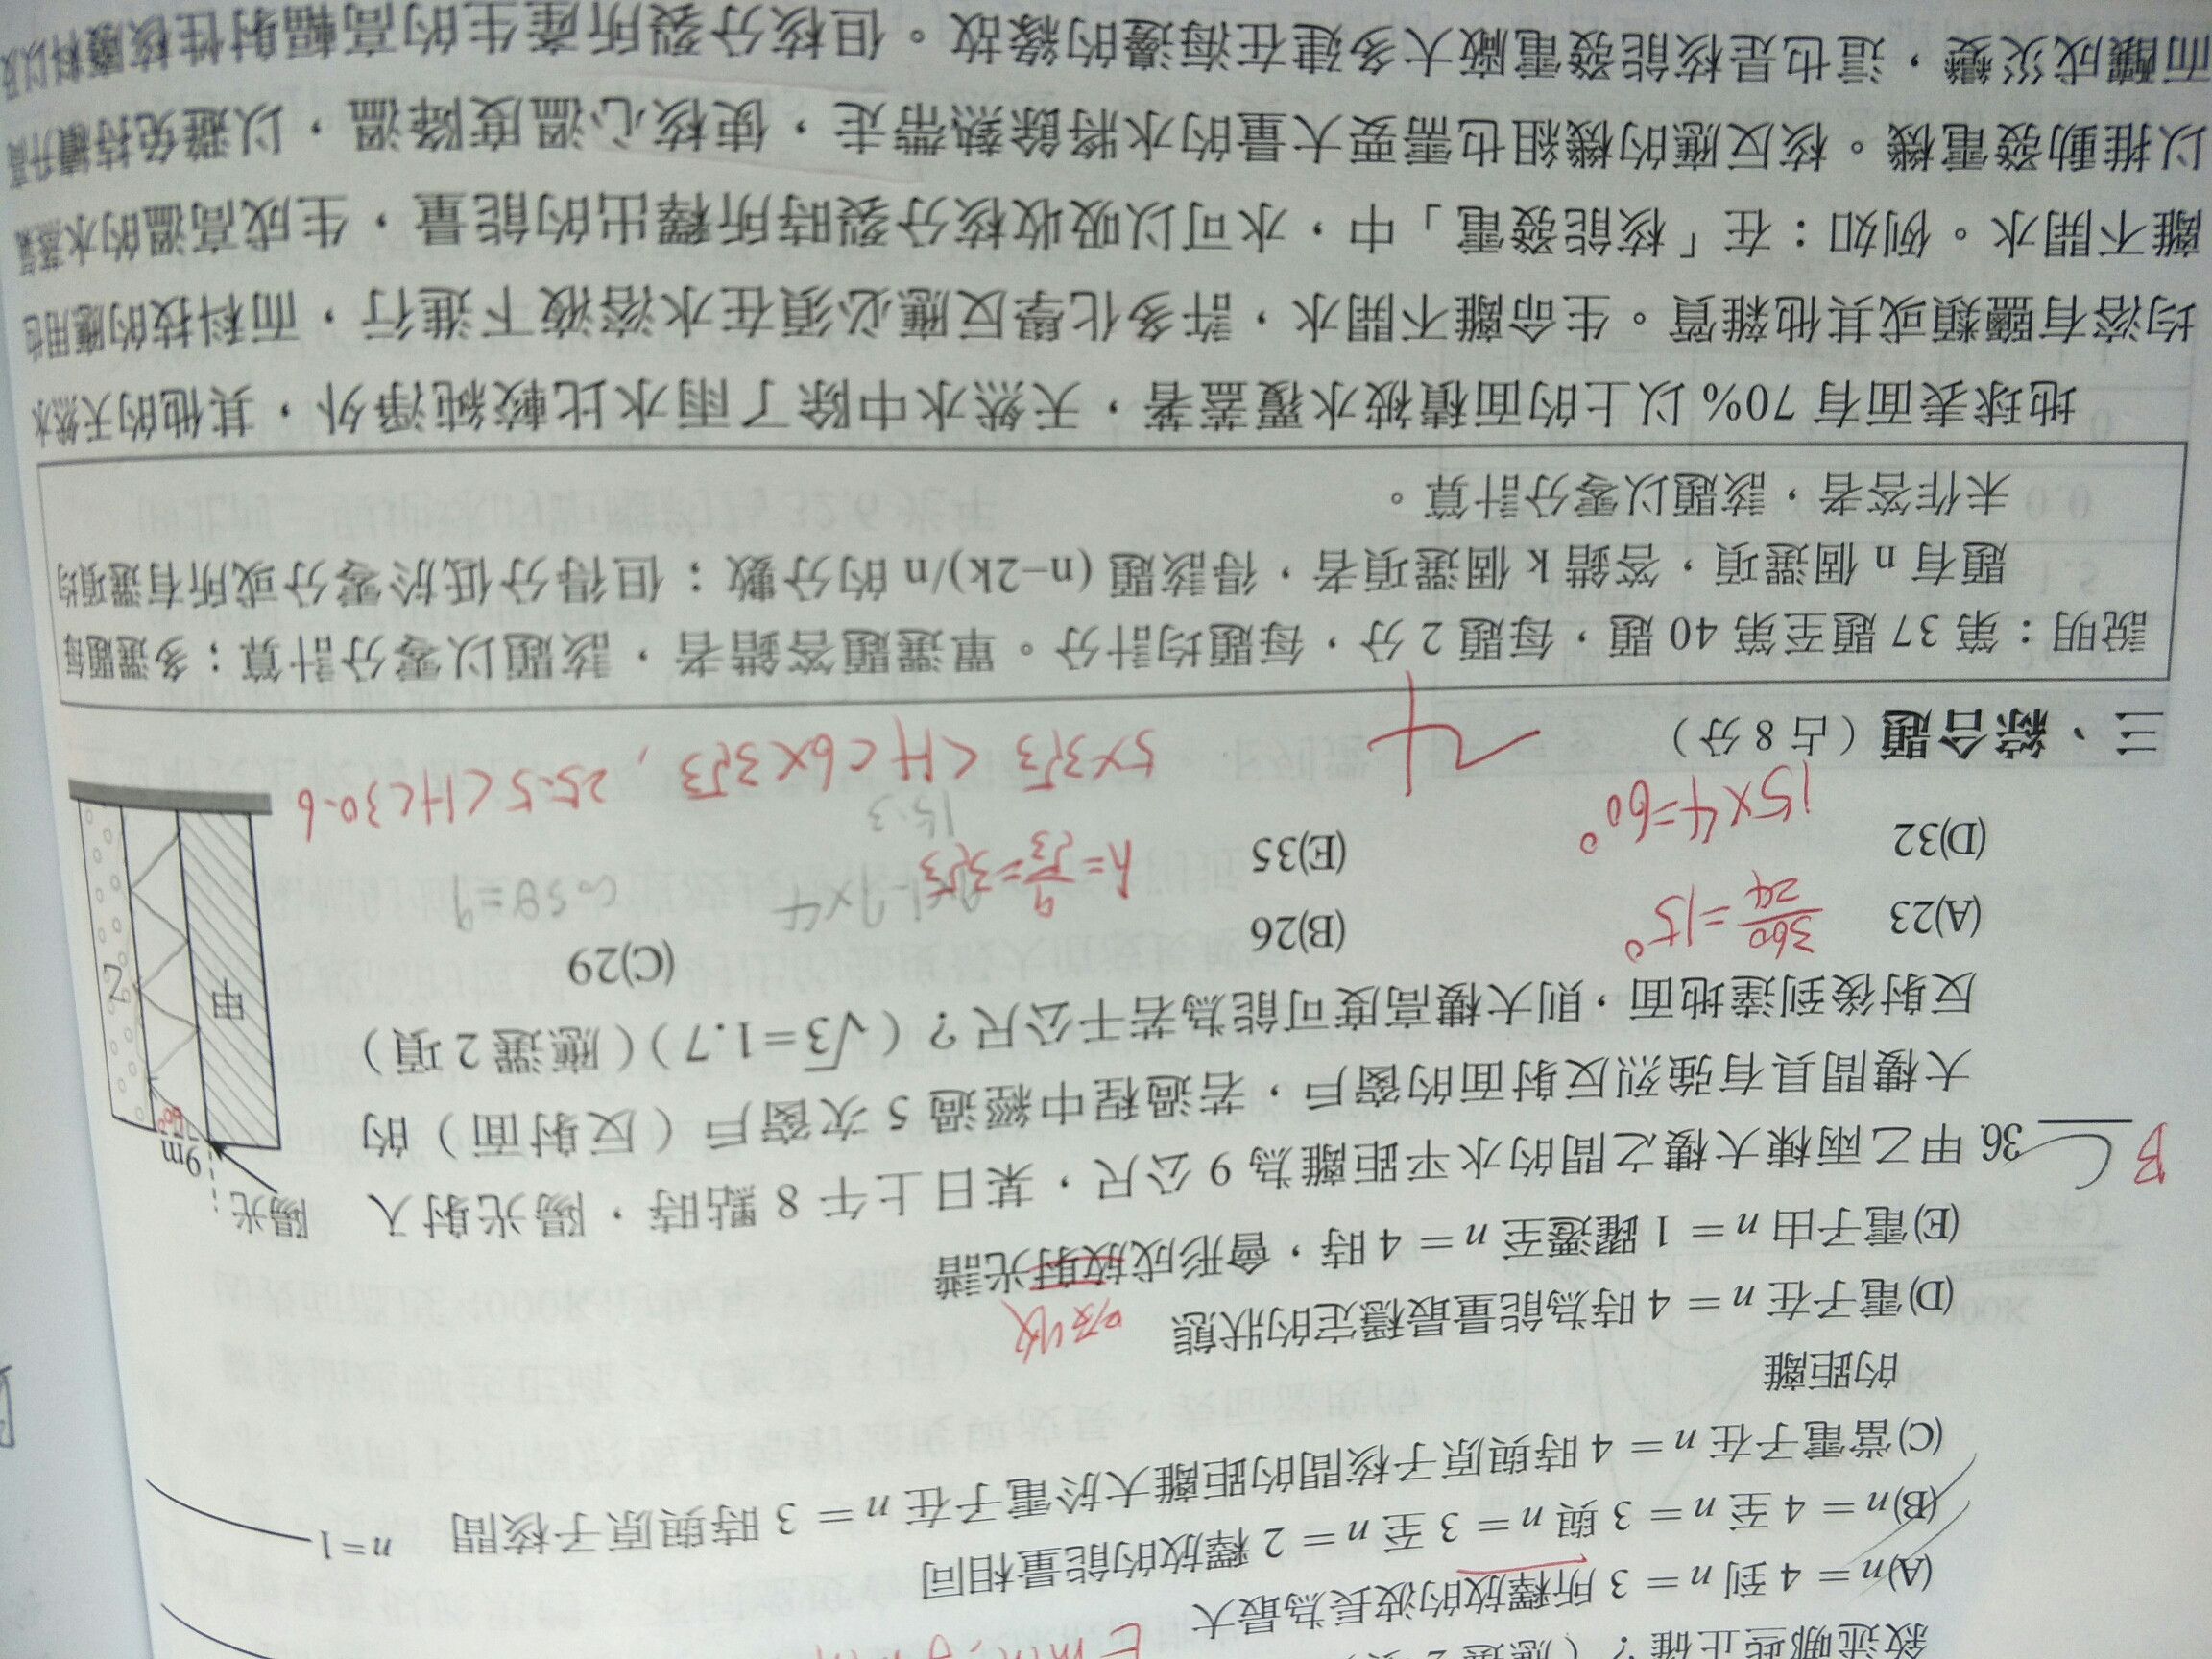 敘述哪些正確？（應選 2
(A) n = 4 到 n = 3 所釋放的波長為最大
(B) n = 4 至 n = 3 與 n = 3 至 n = 2 釋放的能量相同
(C) 當電子在 n = 4 時與原子核間的距離大於電子在 n = 3 時與原子核間
的距離
n=1
(D) 電子在 n = 4 時為能量最穩定的狀態
吸收
(E) 電子由 n = 1 躍遷至 n = 4 時，會形成放射光譜
BC
36. 甲乙兩棟大樓之間的水平距離為 9 公尺，某日上午 8 點時，陽光射入
大樓間具有強烈反射面的窗戶，若過程中經過 5 次窗戶（反射面）的
反射後到達地面，則大樓高度可能為若干公尺？（√3=1.7）（應選 2 項）
(A)23
(B)26
(C)29
(D)32
(E)35
陽光
9m
60°
甲
乙
360/24 = 15°
15×4=60°
h= 9/√3 = 3√3
cosθ=9
15.3
5×3√3 <H<6×3√3 , 25.5<H<30.6
三、綜合題（占 8 分）
說明：第 37 題至第 40 題，每題 2 分，每題均計分。單選題答錯者，該題以零分計算；多選題每
題有 n 個選項，答錯 k 個選項者，得該題 (n−2k)/n 的分數；但得分低於零分或所有選項均
未作答者，該題以零分計算。
地球表面有 70% 以上的面積被水覆蓋著，天然水中除了雨水比較純淨外，其他的天然水
均溶有鹽類或其他雜質。生命離不開水，許多化學反應必須在水溶液下進行，而科技的應用也
離不開水。例如：在「核能發電」中，水可以吸收核分裂時所釋出的能量，生成高溫的水蒸氣
以推動發電機。核反應的機組也需要大量的水將餘熱帶走，使核心溫度降溫，以避免持續升高
而釀成災變，這也是核能發電廠大多建在海邊的緣故。但核分裂所產生的高輻射性核廢料以及